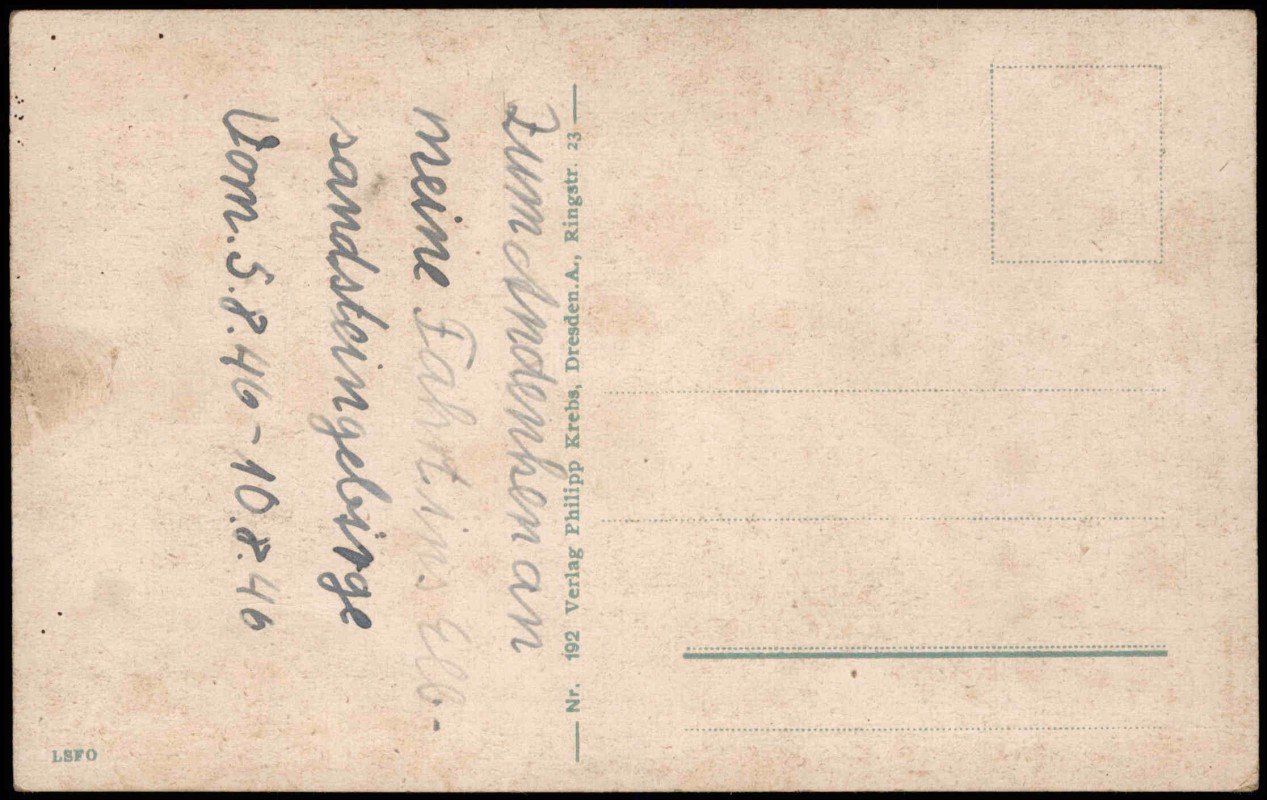 Zum Andenken an
meine Fahrt ins Elb-
sandsteingebirge
Vom. 5.8.46-10.8.46
Nr. 192 Verlag Philipp Krebs, Dresden.A., Ringstr. 23
LSFO